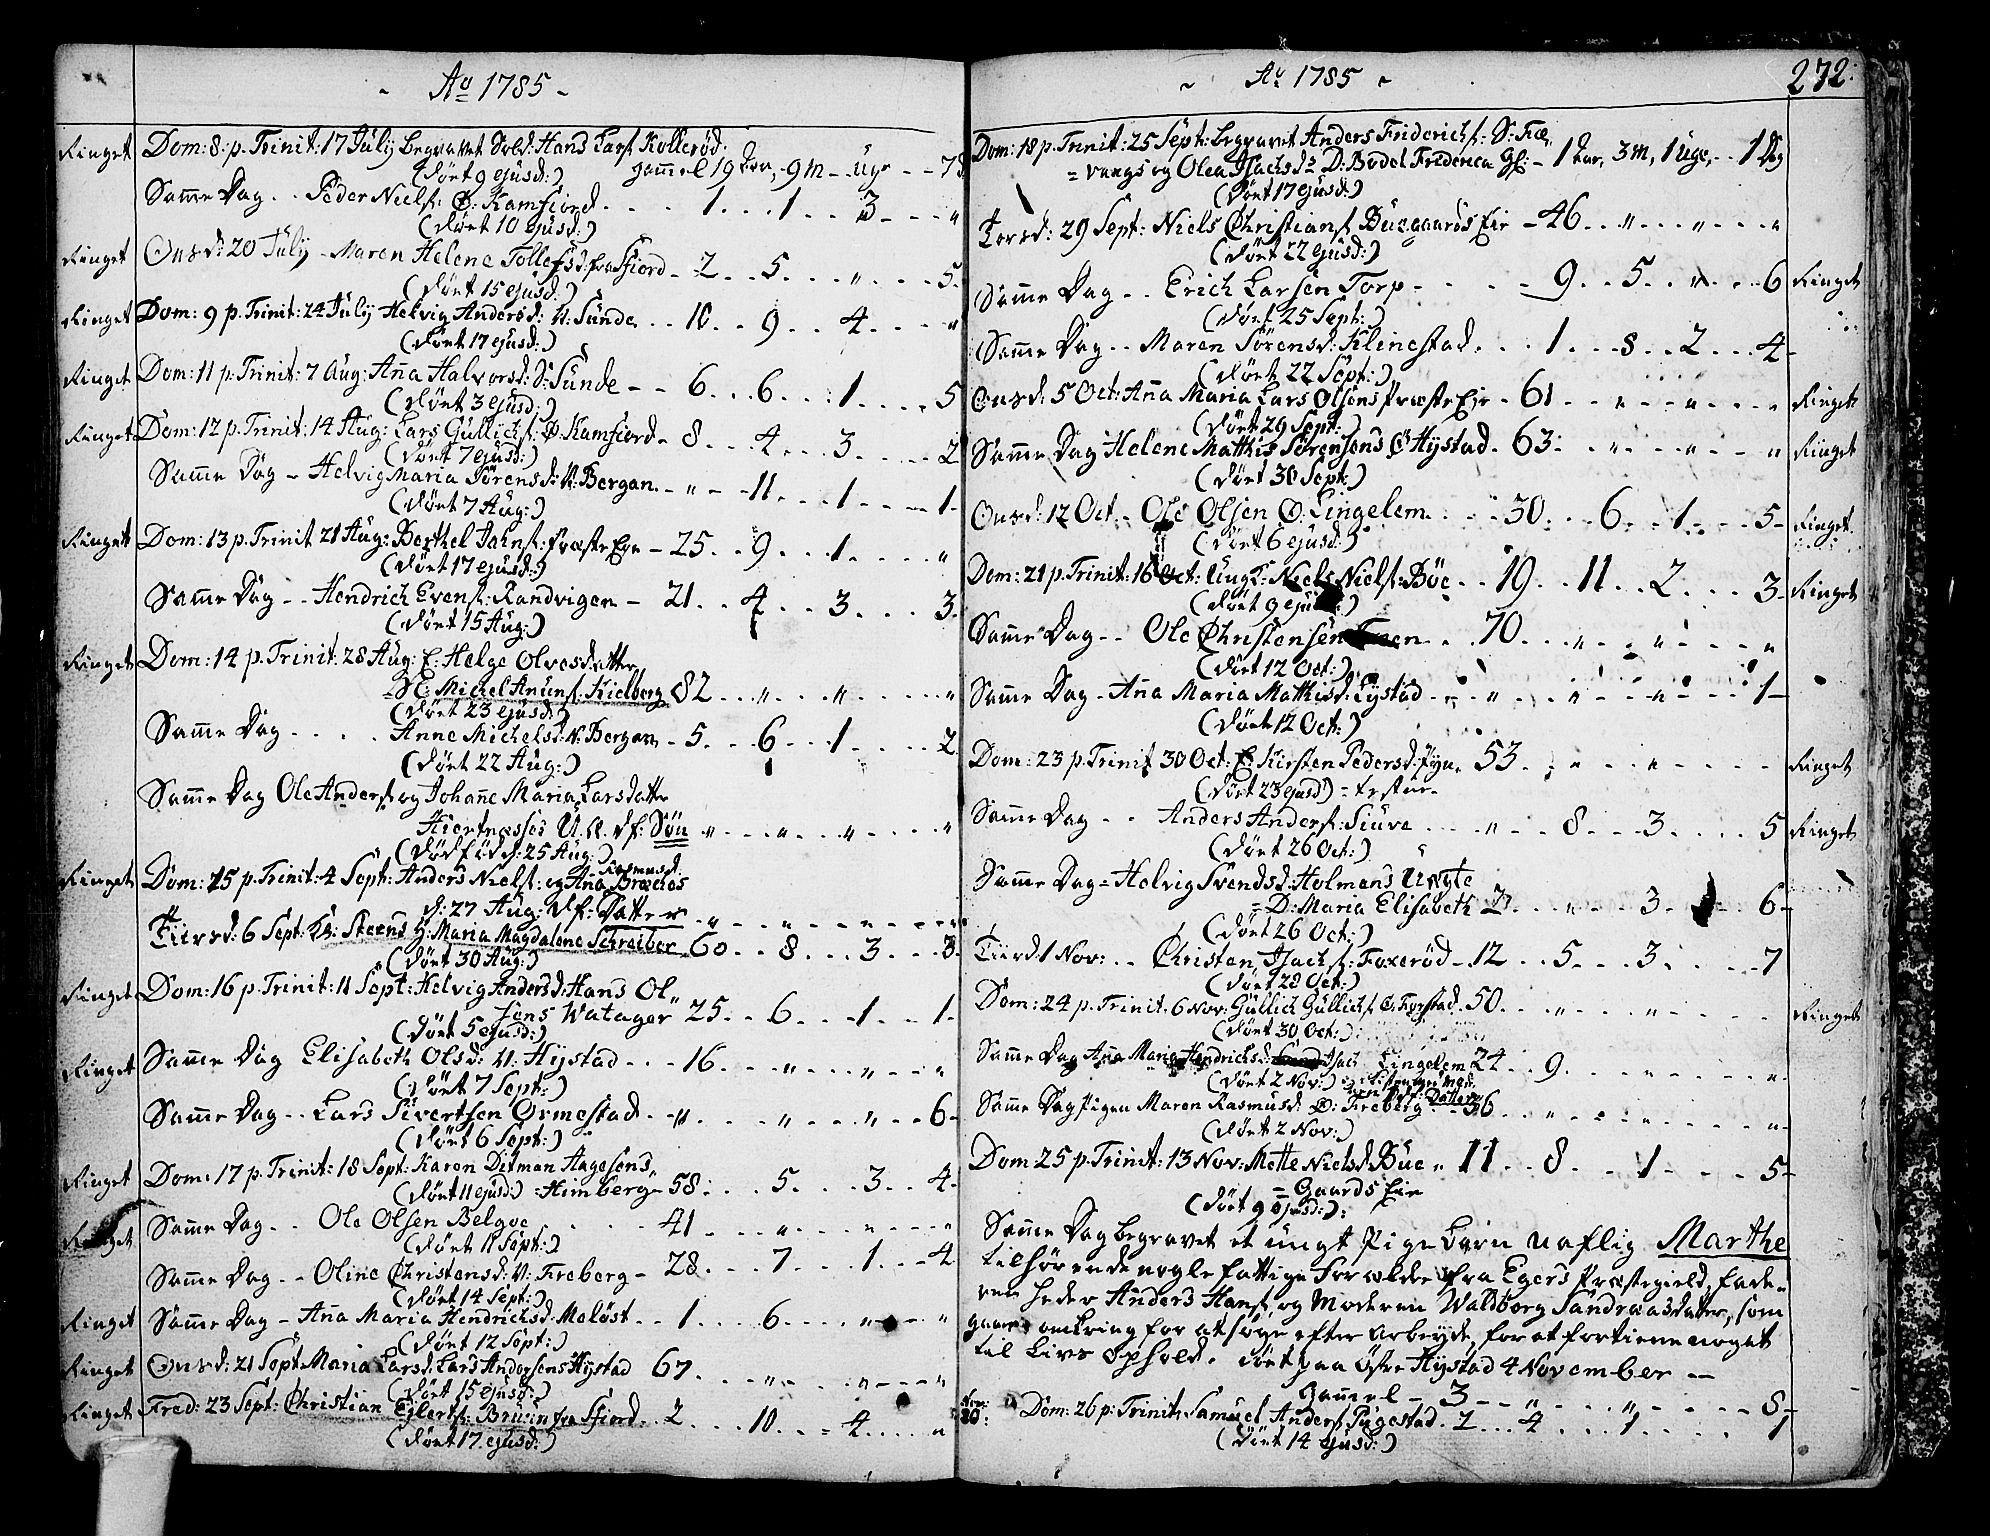 - Ao 1785 -
Ringet Dom: 8. p. Trinit: 17 July begravet Sold: Hans Lars: Kollerød.
(døet 9 ejusd:) gammel 19 Aar, - 9 M - Uge - - 7 d
Samme Dag . . Peder Niels: Ø. Kamfiord . . . . 1 . . . 1 . . 3 - - - "
(døet 10 ejusd:)
Ringet Onsd: 20 July - Maren Helene Tollefsd: fra Fiord - 2 . . 5 . . . " . . . 5.
(døet 15 ejusd:)
Ringet Dom: 9 p. Trinit: 24 July Helvig Andersd: N. Sunde . . 10 . . 9 . . 4 . . . "
(døet 17 ejusd:)
Ringet Dom: 11 p: Trinit: 7 Aug: Aña Halvorsd: S: Sunde - - 6 . . 6 . . . 1 . . . . 5
(døet 3 ejusd:)
Ringet Dom: 12 p. Trinit: 14 Aug: Lars Gullichs: Ø. Kamfiord - 8 . . 4 . . . 3 . . . . 2
(døet 7 ejusd:)
Samme Dag - Helvig Maria Sørensd: N: Bergan. - " - - 11 . . . 1 . . . - 1 -
(døet 7 Aug:)
Ringet Dom: 13 p. Trinit 21 Aug: Berthel Jahns: Præste Eje - 25 . . 9 . . . 1 . . . . "
(døet 17 ejusd:)
Samme Dag - - Hendrich Evens: Randvigen - 21 . . 4 . . . 3 . . . 3.
(døet 15 Aug:)
Ringet Dom: 14 p. Trinit: 28 Aug: E: Helge Olvesdatter
Sl: Michel Anuns: Kielberg 82 . . . " . . . " . . . . "
(døet 23 ejusd:)
Samme Dag . . . . Anne Michelsd: N. Bergan - 5 . . . 6 . . . 1 . . . . 2
(døet 22 Aug:)
Samme Dag Ole Anders: og Johañe Maria Larsdatter
Kiertnæsses U. Æ. df: Søn " . . . " . . . " . . . . "
(dødføed: 25 Aug:)
Ringet Dom: 15 p. Trinit: 4 Sept: Anders Niels: og Aña Rasmusd: Bræches
d: 27 Aug: df: Datter - " - - - " - - - " - - - "
Tiersd: 6 Sept: Kk: Steens H: Maria Magdalene Schreiber 60 . . 8 . . . 3 . . . 3.
(døet 30 Aug:)
Ringet Dom: 16 p. Trinit: 11 Sept: Helvig Andersd: Hans Ol„
sens Watager 25 . . 6 . . . 1 . . 1 -
(døet 5 ejusd:)
Ringet Samme Dag Elisabeth Olsd: N. Hystad . . . 16 . . . " . . . " . . . "
(døet 7 Sept:)
Samme Dag . . Lars Sivertsen Ormestad . . " . . . " . . . " . . . 6 -
(døet 6 Sept:)
Ringet Dom: 17 p. Trinit: 18 Sept: Karen Ditman Aagesens,
(døet 11 ejusd:) = Himberg - 58 . . . 5 . . . 3 . . . 4 -
Ringet Samme Dag . . Ole Olsen Belgve . . . . . 41 . . . " . . . " . . . "
(døet 11 Sept:)
Samme Dag . . Oline Christensd: N: Freberg - 28 . . . 7 . . . 1 . . . 4
(døet 14 Sept:)
Ringet Samme Dag - Aña Maria Hendrichsd: Meløst . . 1 . . . 6 . . . " . . . "
(døet 12 Sept:)
Ringet Onsd: 21 Sept. Maria Larsd: Lars Andersens Hystad 67 . . . " . . . " . . . "
(døet 15 ejusd:)
Ringet Fred: 23 Sept: Christian Ejlerts: Bruun fra Fiord . . 2 . . . 10 . . = 4 . . . . "
(døet 17 ejusd:)
~ Ao 1785 ~ 272.
Dom: 18 p. Trinit: 25 Sept: begravet Anders Friderichs: S: Fæ,
= vangs og Olea Isachsd: D: Bodel Friderica Gl: - 1 Aar, 3 M, 1 Uge, - - 1 Dag
(døet 17 ejusd:)
Torsd: 29 Sept: Niels Christians: Buegaards Eie - 46 . . . " . . . " . . . "
(døet 22 ejusd:)
Samme Dag . . Erich Larsen Torp - . . . 9 . . 5 . . " . . . 6 Ringet
(døet 25 Sept:)
Samme Dag . . Maren Sørensd: Klinestad . . . 1 . . . 8 . . 2 . . . 4 -
(døet 22 Sept:)
Onsd: 5 Oct: Aña Maria Lars Olsens Præste Eje - 61 . . . " . . . " . . . " Ringet
(døet 29 Sept:)
Samme Dag Helene Mathis Sørensens Ø Hystad - 63 . . . " . . . " . . . " Ringet
(døet 30 Sept:)
Onsd: 12 Oct. - Ole Olsen Ø. Lingelem . . . 30 . . . 6 . . 1 . . . 5 - Ringet
(døet 6 ejusd:)
Dom: 21 p. Trinit: 16 Oct: Ungk: Niels Niels: Bøe . . 19 . . 11 . . 2 . . . 3 - Ringet
(døet 9 ejusd:)
Samme Dag . . Ole Christensen . . 70 . . . " . . . " . . . "
(døet 12 Oct:)
Samme Dag - Aña Maria Mathisd: Lystad - " . . . " . . . " . . . 1 -
(døet 12 Oct:)
Dom: 23 p. Trinit 30 Oct: E: Kirsten Pedersd: Fyn, 53 . . . " . . . " . . . Ringet
(døet 23 ejusd:) = trster.
Samme Dag . . Anders Anders: Siuve . . . " . . 8 . . . 3 . . . . 5 Ringet
(døet 26 Oct:)
Samme Dag = Helvig Svendsd: Holmens Uægte
= D: Maria Elisabeth . . . " . . . 3 . . . 6 -
(døet 26 Oct:)
Tiersd: 1 Nov: . . Christen Isachs: Foxerød - 12 . . . 5 . . . 3 . . . . 7
(døet 28 Oct:)
Dom: 24 p. Trinit. 6 Nov: Gullich Gullichs: Ø. Forstad. 50 . . . " . . . " . . . Ringet
(døet 30 Oct:)
Samme Dag Aña Maria Hendrichsd: Isach Lingelem 24 . . 9 . . . " . . . "
(døet 2 Nov:)
Samme Dag Pigen Maren Rasmusd: Ø: Freberg - 36 . . . " . . . " . . . "
(døet 2 Nov:)
Dom 25 p. Trinit: 13 Nov: Mette Nielsd: Bue „ 11 . . 8 . . . 1 . . . . 5 -
= Gaards Eie
(døet 9 ejusd:):
Samme Dag begravet et ungt Pigebarn naflig Marthe
tilhørende nogle fattige Forældre fra Egers Præstegield, Fade„
ren heder Anders Hans: og Moderen Waldborg Sandraasdatter, som
gaaer omkring for at søge efter Arbeyde, for at fortiene noget
til Livs Ophold. døet paa Østre Hystad 4 November —
Gammel - 3 - - " . . . " . . . 8 -
Nov: 20: Dom: 26 p: Trinit: Samuel Anders: Pugestad. 2 . . 4 . . . 1 . . . . 1
(døet 14 ejusd:)